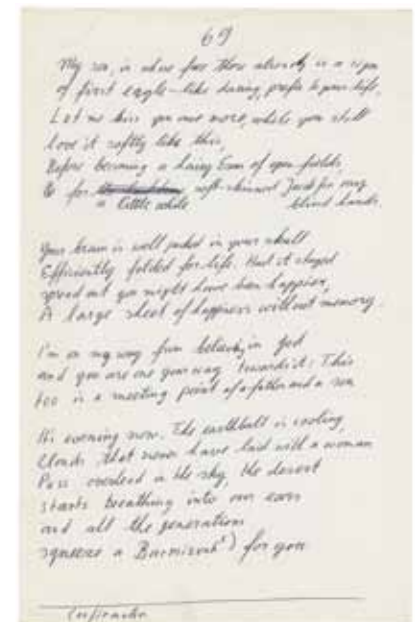 69
My son, in whose face there already is a sign
of first eagle-like daring, prefix to your life,
Let me kiss you once more, while you still
love it softly like this,
Before becoming a hairy Esau of open fields,
be for soft-skinned Jacob for my
a little while blind hands.
Your brain is well packed in your skull
Efficiently folded for life. Had it stayed
spread out you might have been happier,
A large sheet of happiness without memory.
I'm on my way from believing in god
and you are on your way towards it: This
too is a meeting point of a father and a son
It's evening now. The earthball is cooling,
Clouds that never have laid with a woman
Pass overhead in the sky, the desert
starts breathing into our ears
and all the generations
squeeze a Barmitzvah*) for you